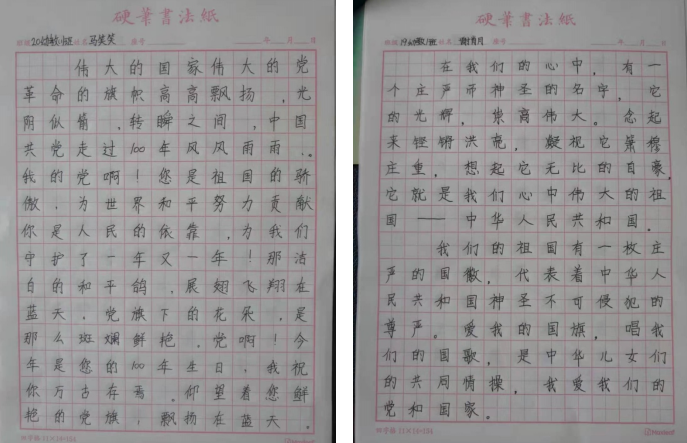 硬筆書法紙
班级20幼教小班姓名马笑笑 座号 年 月 日
伟大的国家伟大的党
革命的旗帜高高飘扬，光
阴似箭，转瞬之间，中国
共党走过100年风风雨雨。
我的党啊！您是祖国的骄
傲，为世界和平努力贡献
你是人民的依靠，为我们
守护了一年又一年！那洁
白的和平鸽，展翅飞翔在
蓝天，党旗下的花朵，是
那么斑斓鲜艳。党啊！今
年是您的100年生日，我祝
你万古存焉。仰望着您鲜
艳的党旗，飘扬在蓝天。
硬筆書法紙
年 月 日
在我们的心中，有一
个庄严而神圣的名字，它
的光辉，崇高伟大。念起
来铿锵洪亮，凝视它肃穆
庄重，想起它无比的自豪，
它就是我们心中伟大的祖
国——中华人民共和国。
我们的祖国有一枚庄
严的国徽，代表着中华人
民共和国神圣不可侵犯的
尊严。爱我的国旗，唱我
们的国歌，是中华儿女们
的共同情操，我爱我们的
党和国家。